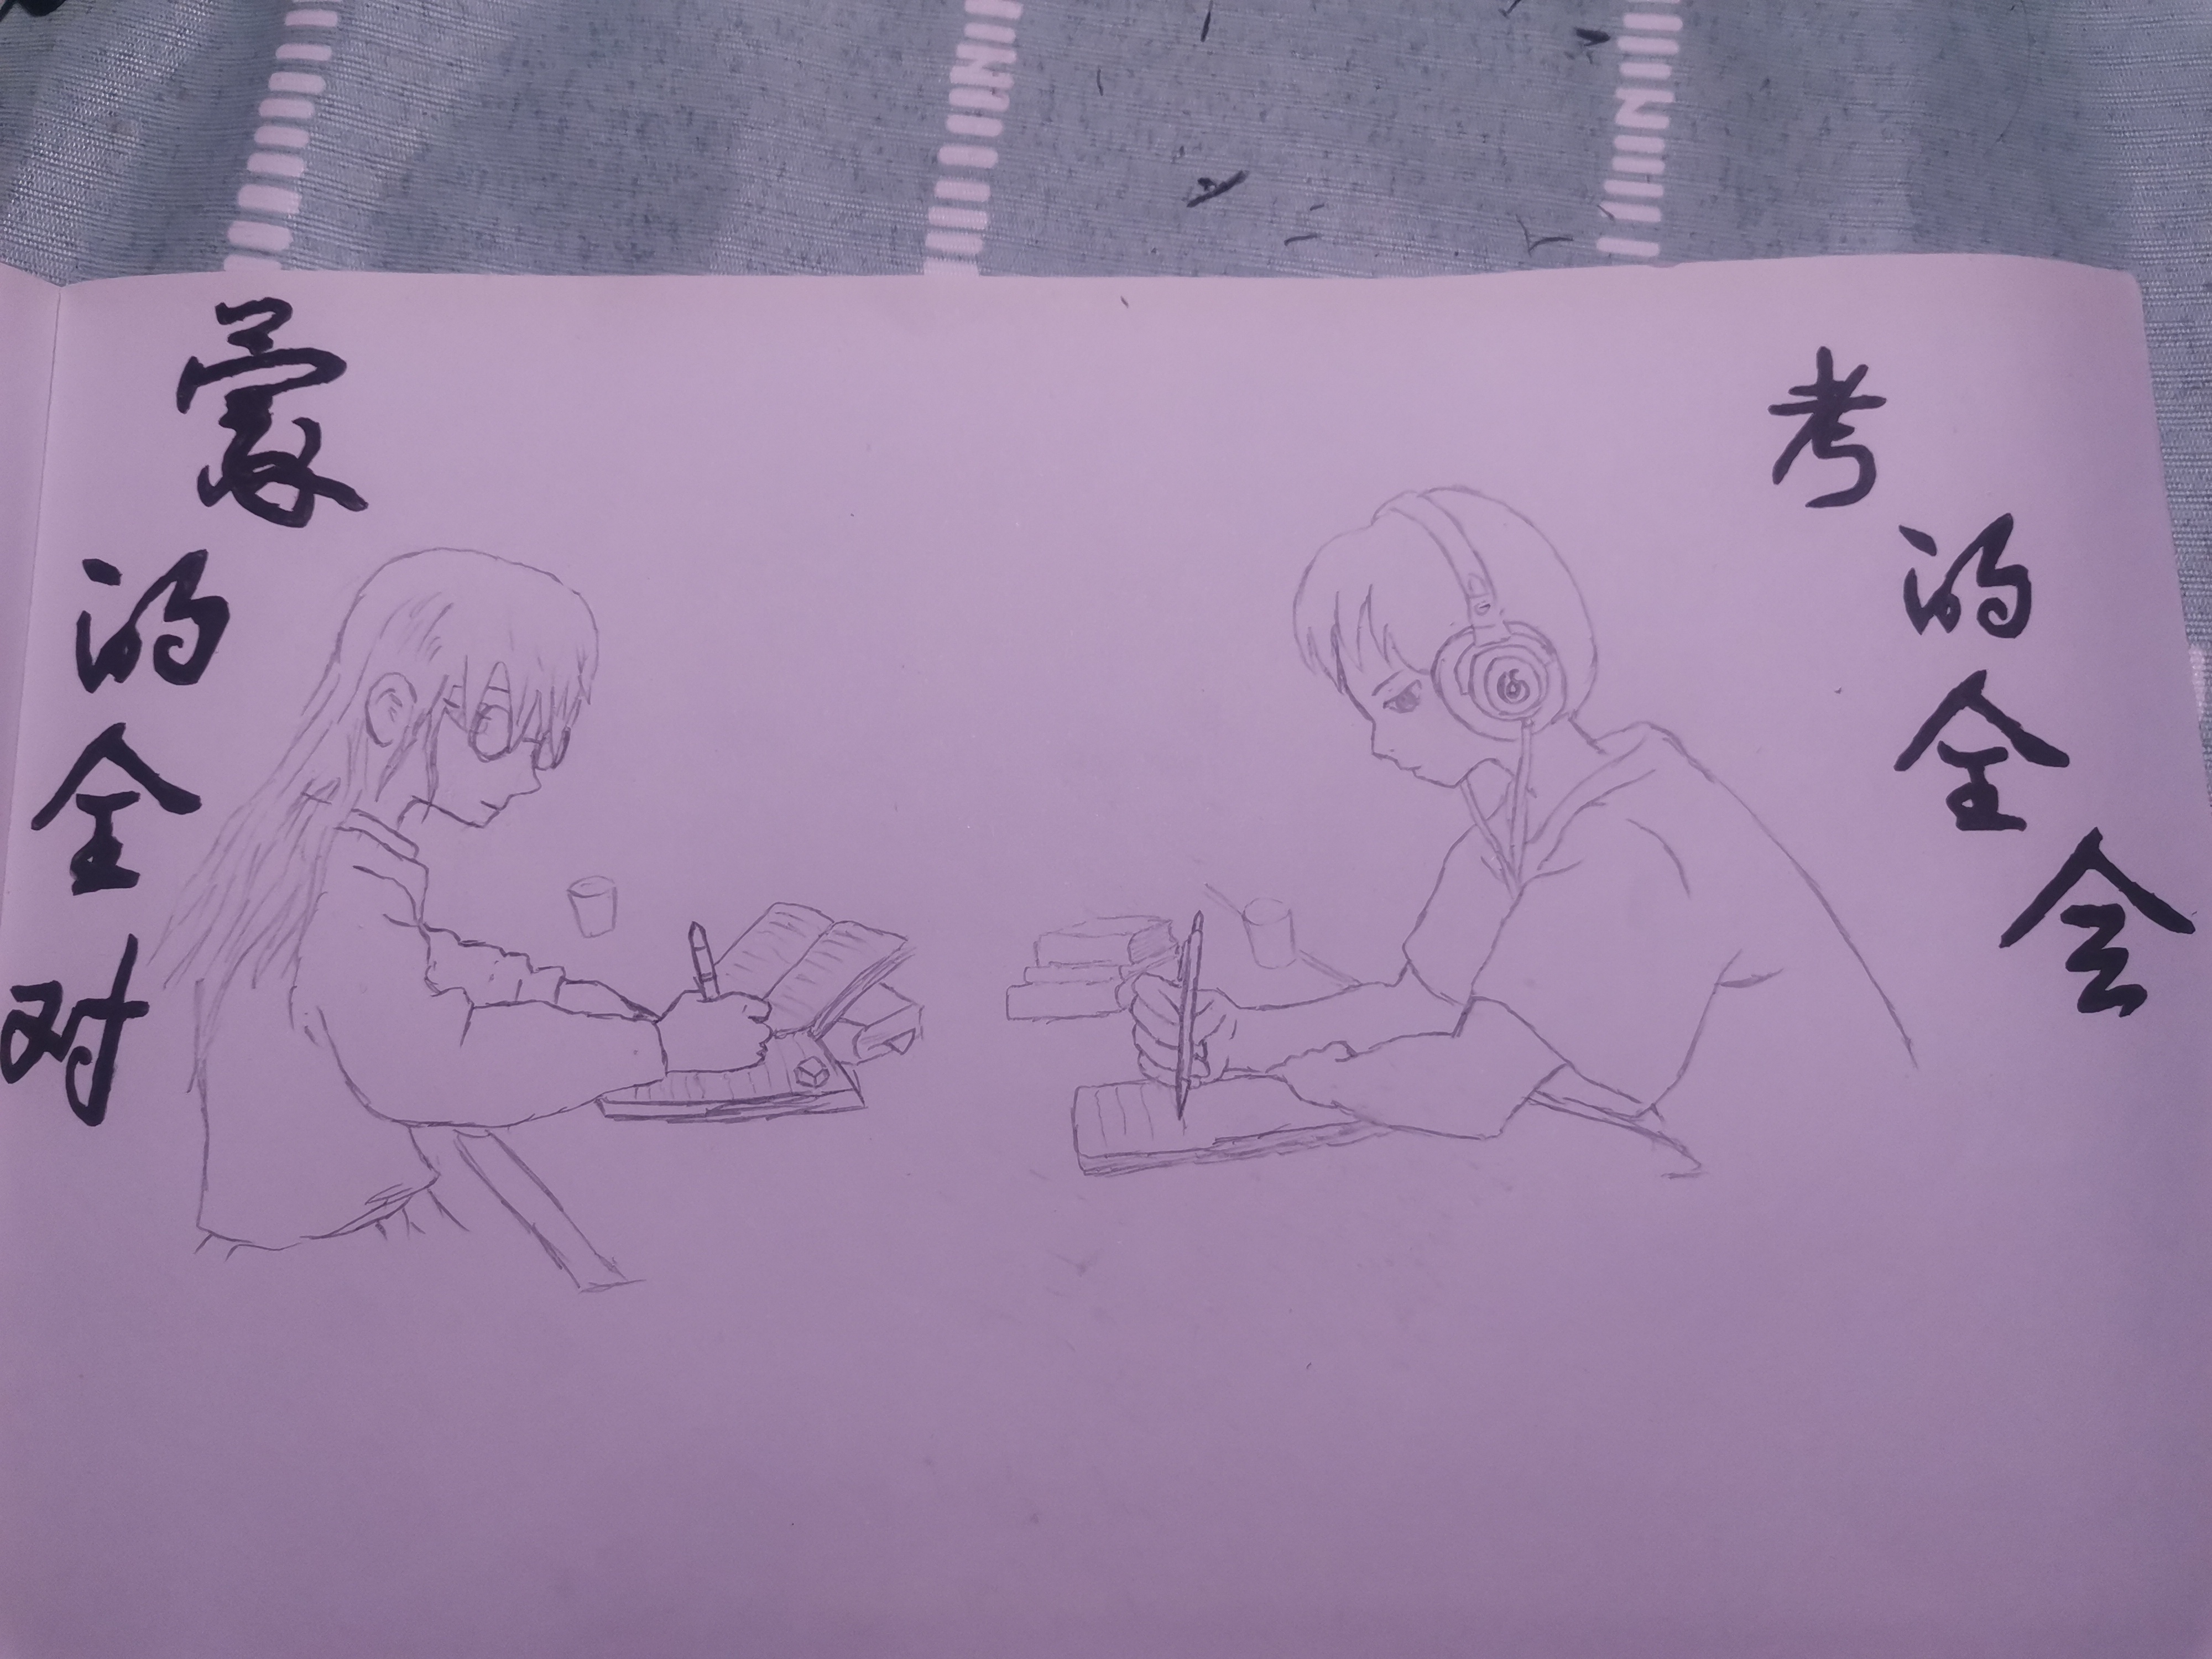 考的全会
蒙的全对